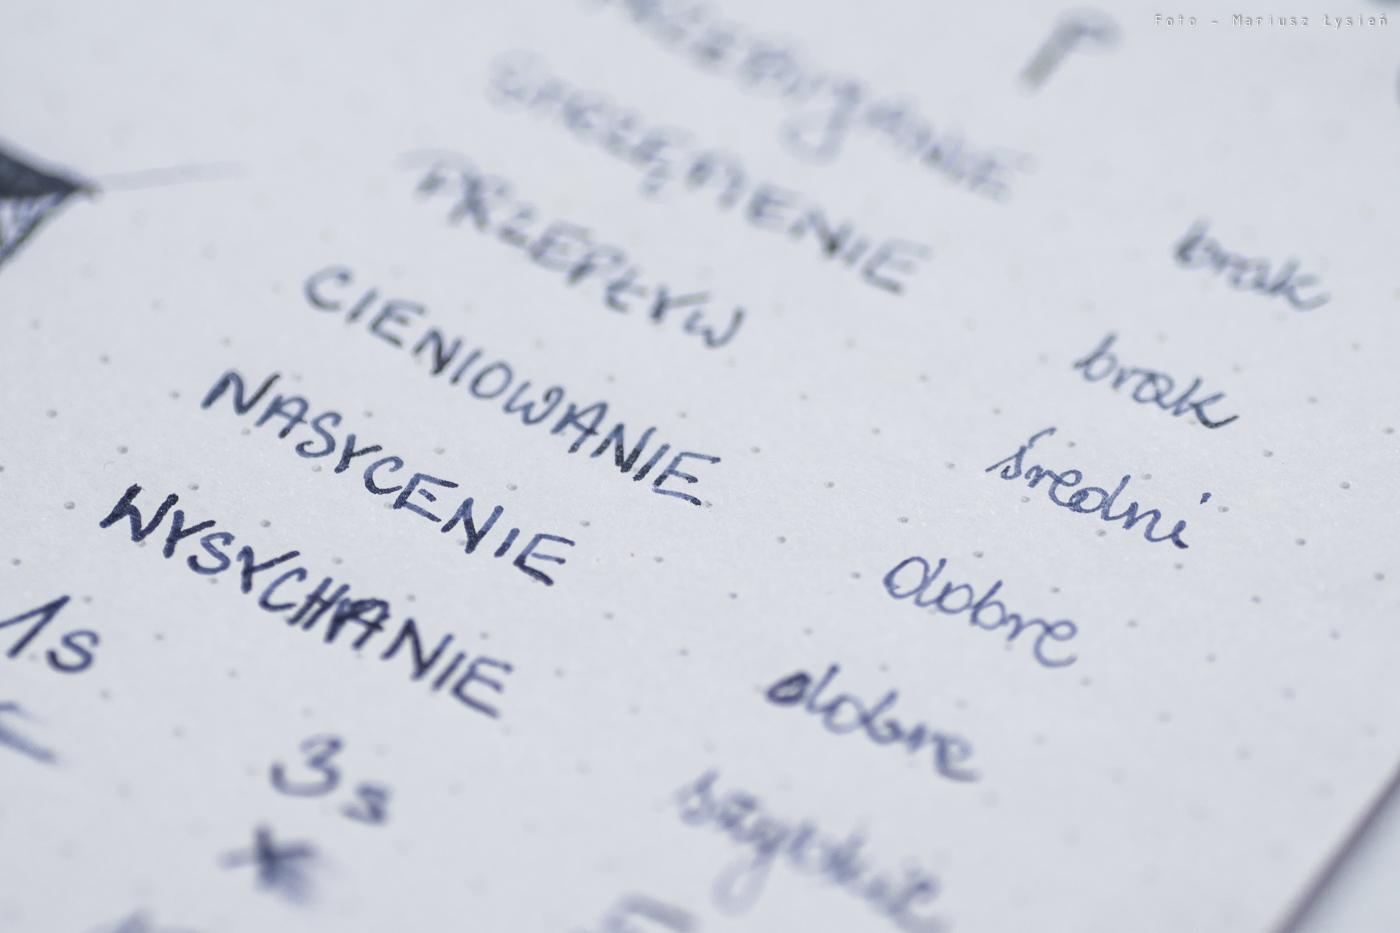 Foto - Mariusz Łysień
brak
brak
PRZEPŁYW średni
CIENIOWANIE dobre
NASYCENIE dobre
WYSYCHANIE szybkie
1s
3s